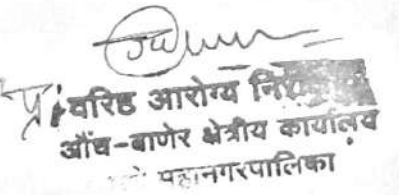 प्र. वरिष्ठ आरोग्य
औंध-बाणेर क्षेत्रीय कार्यालय
महानगरपालिका